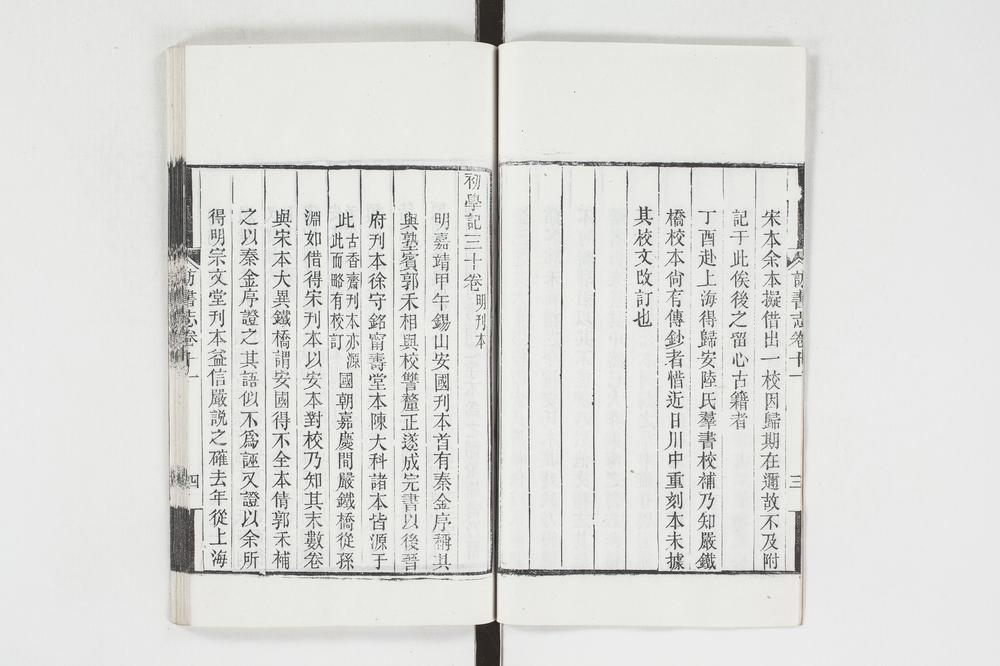 宋本余本擬借出一校因歸期在邇故不及附
記于此俟後之留心古籍者
丁酉赴上海得歸安陸氏羣書校補乃知嚴鐵
橋校本尙有傳鈔者惜近日川中重刻本未據
其校文改訂也
訪書志卷十一
三
初學記三十卷 明刊本
明嘉靖甲午錫山安國刊本首有秦金序稱其
與塾賓郭禾相與校讐釐正遂成完書以後晉
府刊本徐守銘甯壽堂本陳大科諸本皆源于
此 古香齋刊本亦源此而略有校訂 國朝嘉慶間嚴鐵橋從孫
淵如借得宋刊本以安本對校乃知其末數卷
與宋本大異鐵橋謂安國得不全本倩郭禾補
之以秦金序證之其語似不爲誣又證以余所
得明宗文堂刊本益信嚴説之確去年從上海
訪書志卷十一
四